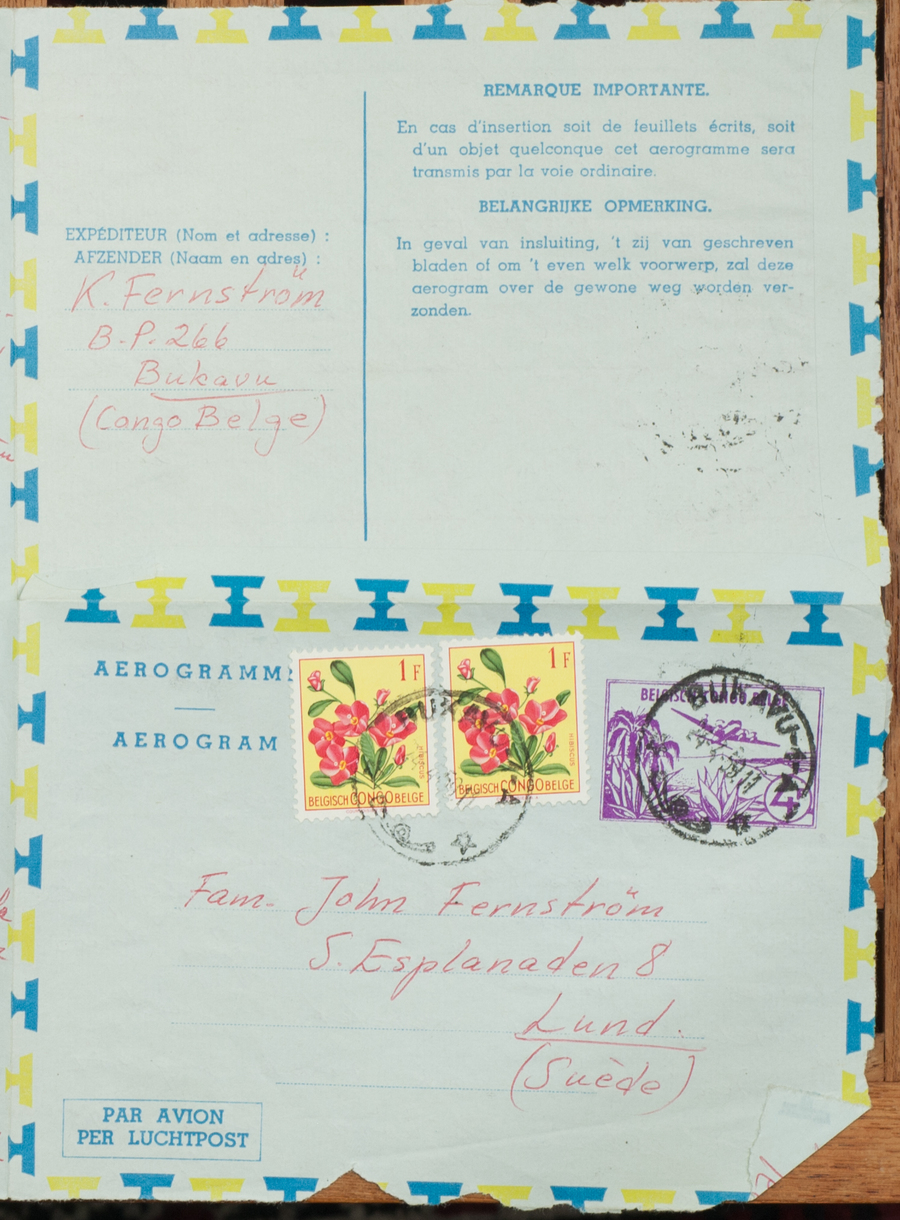 REMARQUE IMPORTANTE.
En cas d'insertion soit de feuillets écrits, soit
d'un objet quelconque cet aerogramme sera
transmis par la voie ordinaire.
BELANGRIJKE OPMERKING.
In geval van insluiting, 't zij van geschreven
bladen of om 't even welk voorwerp, zal deze
aerogram over de gewone weg worden ver-
zonden.
EXPÉDITEUR (Nom et adresse) :
AFZENDER (Naam en adres) :
K. Fernström
B.P. 266
Bukavu
(Congo Belge)
AEROGRAMM
AEROGRAM
1 F
HIBISCUS
BELGISCH CONGO BELGE
1 F
HIBISCUS
BELGISCH CONGO BELGE
BUKAVU
BELGISCH CONGO BELGE
4
BUKAVU
Fam. John Fernström
S. Esplanaden 8
Lund.
(Suède)
PAR AVION
PER LUCHTPOST